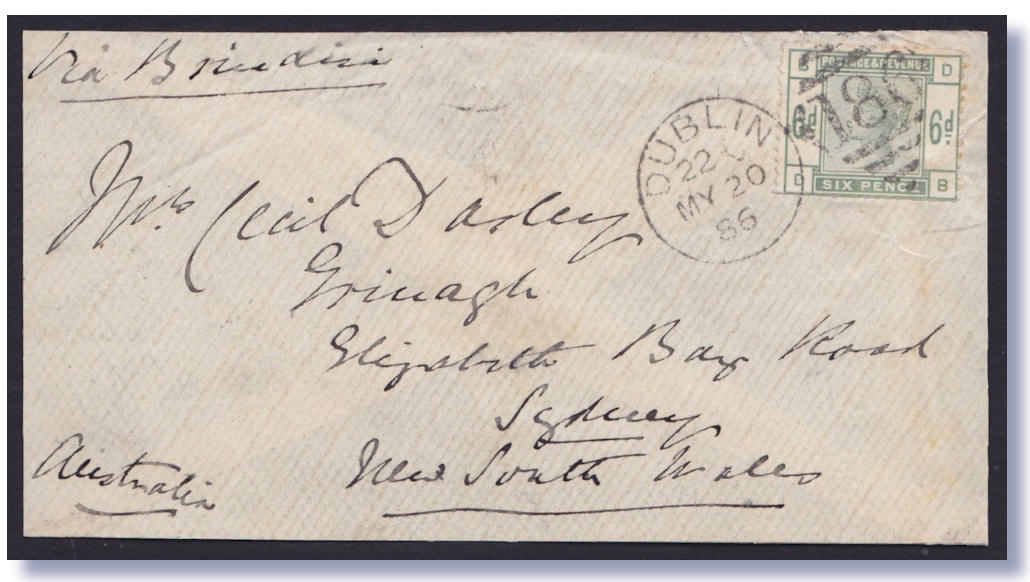 Via Brindisi
DUBLIN
22
MY 20
86
186
B POSTAGE & REVENUE D
6d 6d
D SIX PENCE B
Mrs. Cecil Darley
Grinagh
Elizabeth Bay Road
Sydney
Australia
New South Wales